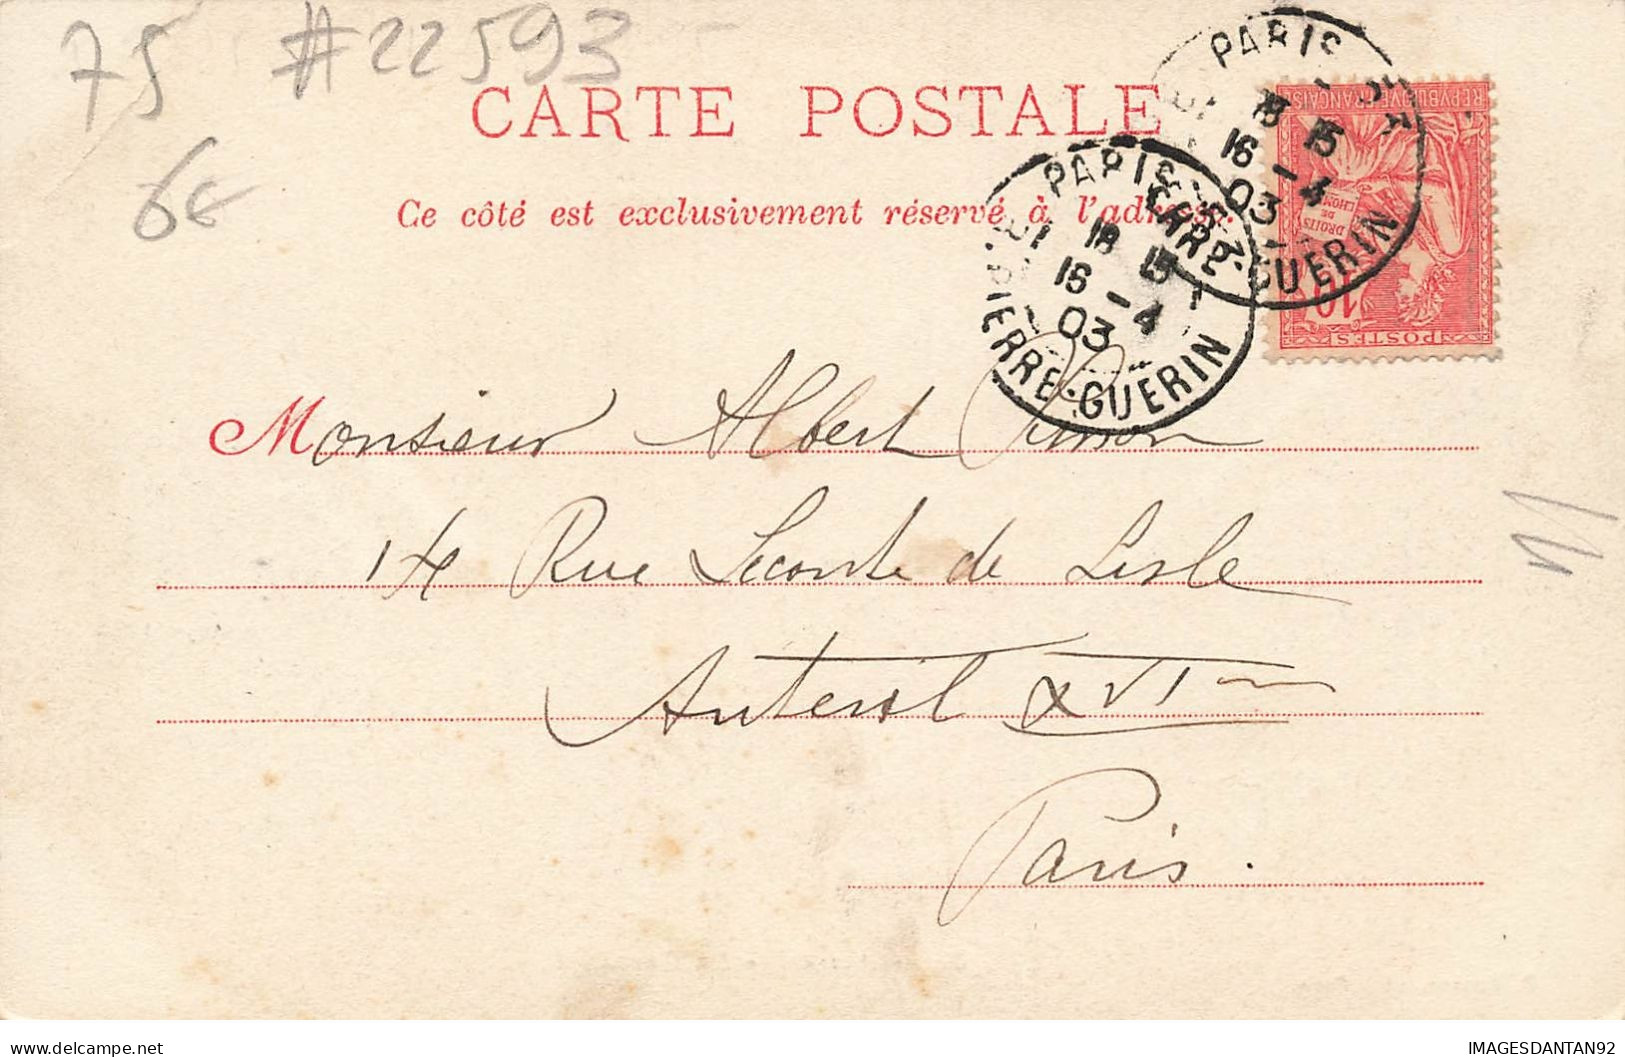 75 #22593
6€
CARTE POSTALE
Ce côté est exclusivement réservé à l'adresse.
PARIS
18 15
16 - 4
03
PIERRE-GUERIN
PARIS
18 15
16 - 4
03
PIERRE-GUERIN
REPVBLIQVE FRANÇAISE
DROITS
DE
LHOMME
10
POSTES
Monsieur Albert Simon
14 Rue Leconte de Lisle
Auteuil XVIme
Paris.
delcampe.net
IMAGESDANTAN92